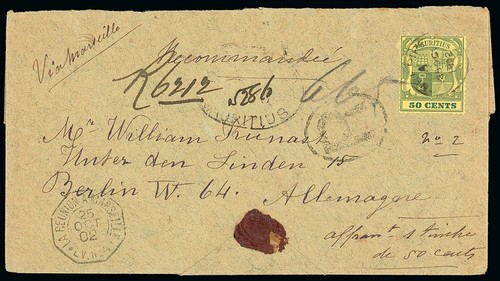 Via Marseille
Recommandée
R 6212
MAURITIUS
50 CENTS
MAURITIUS
No 2
Mr William Kunast
Unter den Linden 15
Berlin W. 64.
Allemagne
LA REUNION A MARSEILLE
25
OCT
02
L.V. N
affrant 1 timbre
de 50 cents